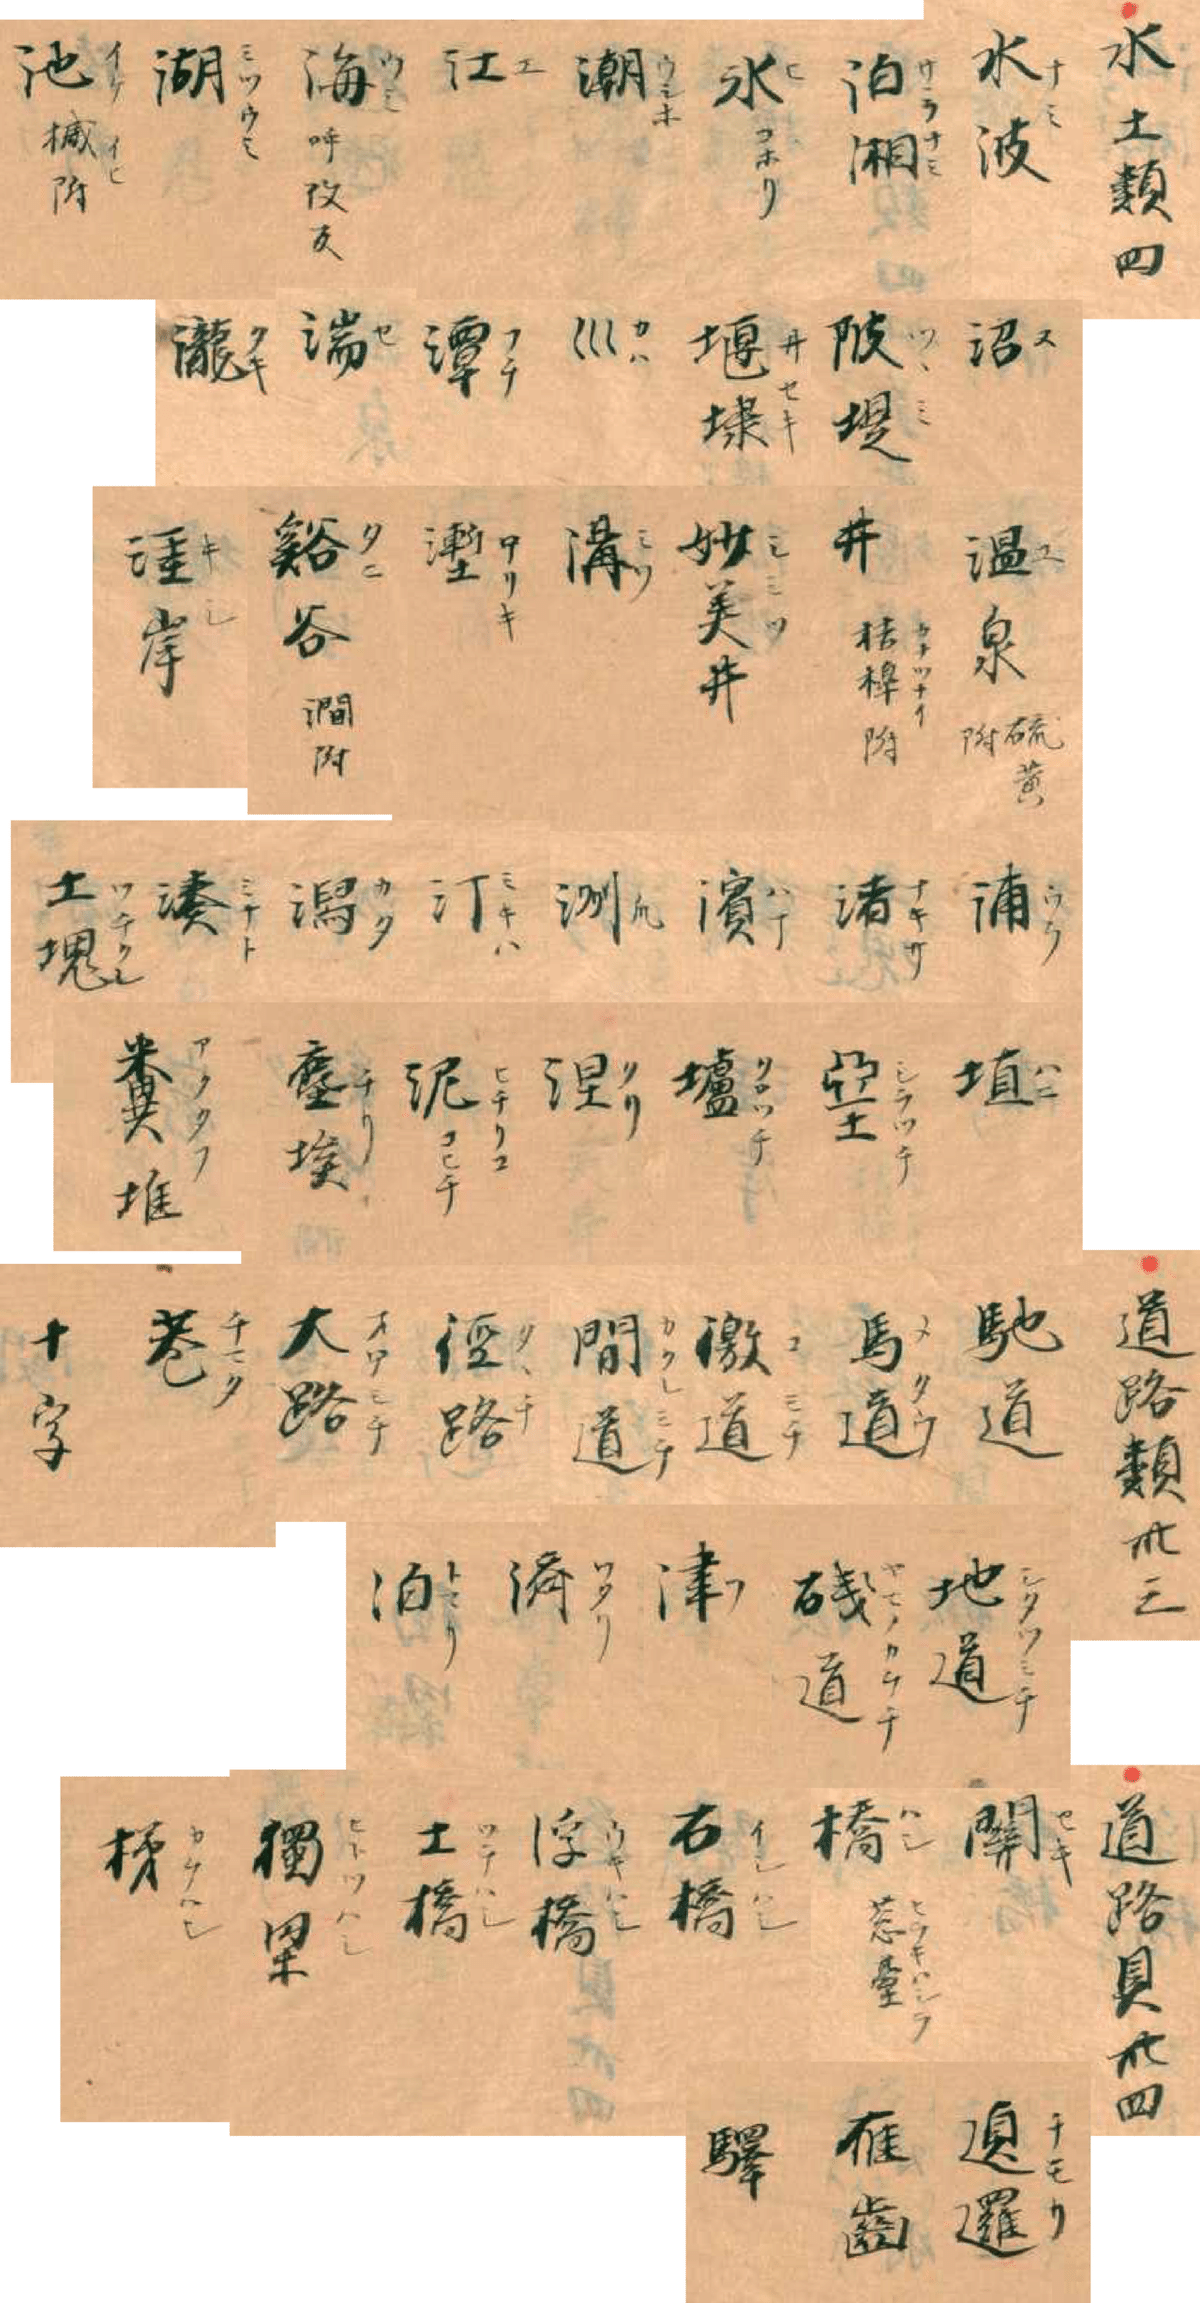 水土類四
水波 ナミ
泊湘 サヽラナミ
氷 ヒ コホリ
潮 ウシホ
江 エ
海 ウミ 呼改反
湖 ミツウミ
池 イケ 楲附 イヒ
沼 ヌ
陂堤 ツヽミ
堰埭 井セキ
川 カハ
潭 フチ
湍 セ
瀧 タキ
温泉 ユ 硫黄附
井 桔槹附
妙美井 シミツ
溝 ミソ
塹 ホリキ
谿谷 タニ 澗附
涯岸 キシ
浦 ウラ
渚 ナキサ
濱 ハマ
洲 ス
汀 ミキハ
潟 カタ
湊 ミナト
土塊 ツチクレ
埴 ハニ
堊 シラツチ
壚 クロツチ
涅 クリ
泥 ヒチリコ コヒチ
塵埃 チリ
糞堆 アクタフ
道路類卅三
馳道
馬道 メタウ
徼道 コミチ
間道 カクレミチ
徑路 タヽチ
大路 オホミチ
巷 チマタ
十字
地道 シタツミチ
磩道 ヤマノカケチ
津 ツ
濟 ワタリ
泊 トマリ
道路具卅四
關 セキ
橋 ハシ 葱臺 ヒラキハシラ
石橋 イシハシ
浮橋 ウキハシ
土橋 ツチハシ
獨梁 ヒトツハシ
梯 カケハシ
邏 チモリ
雁齒
驛